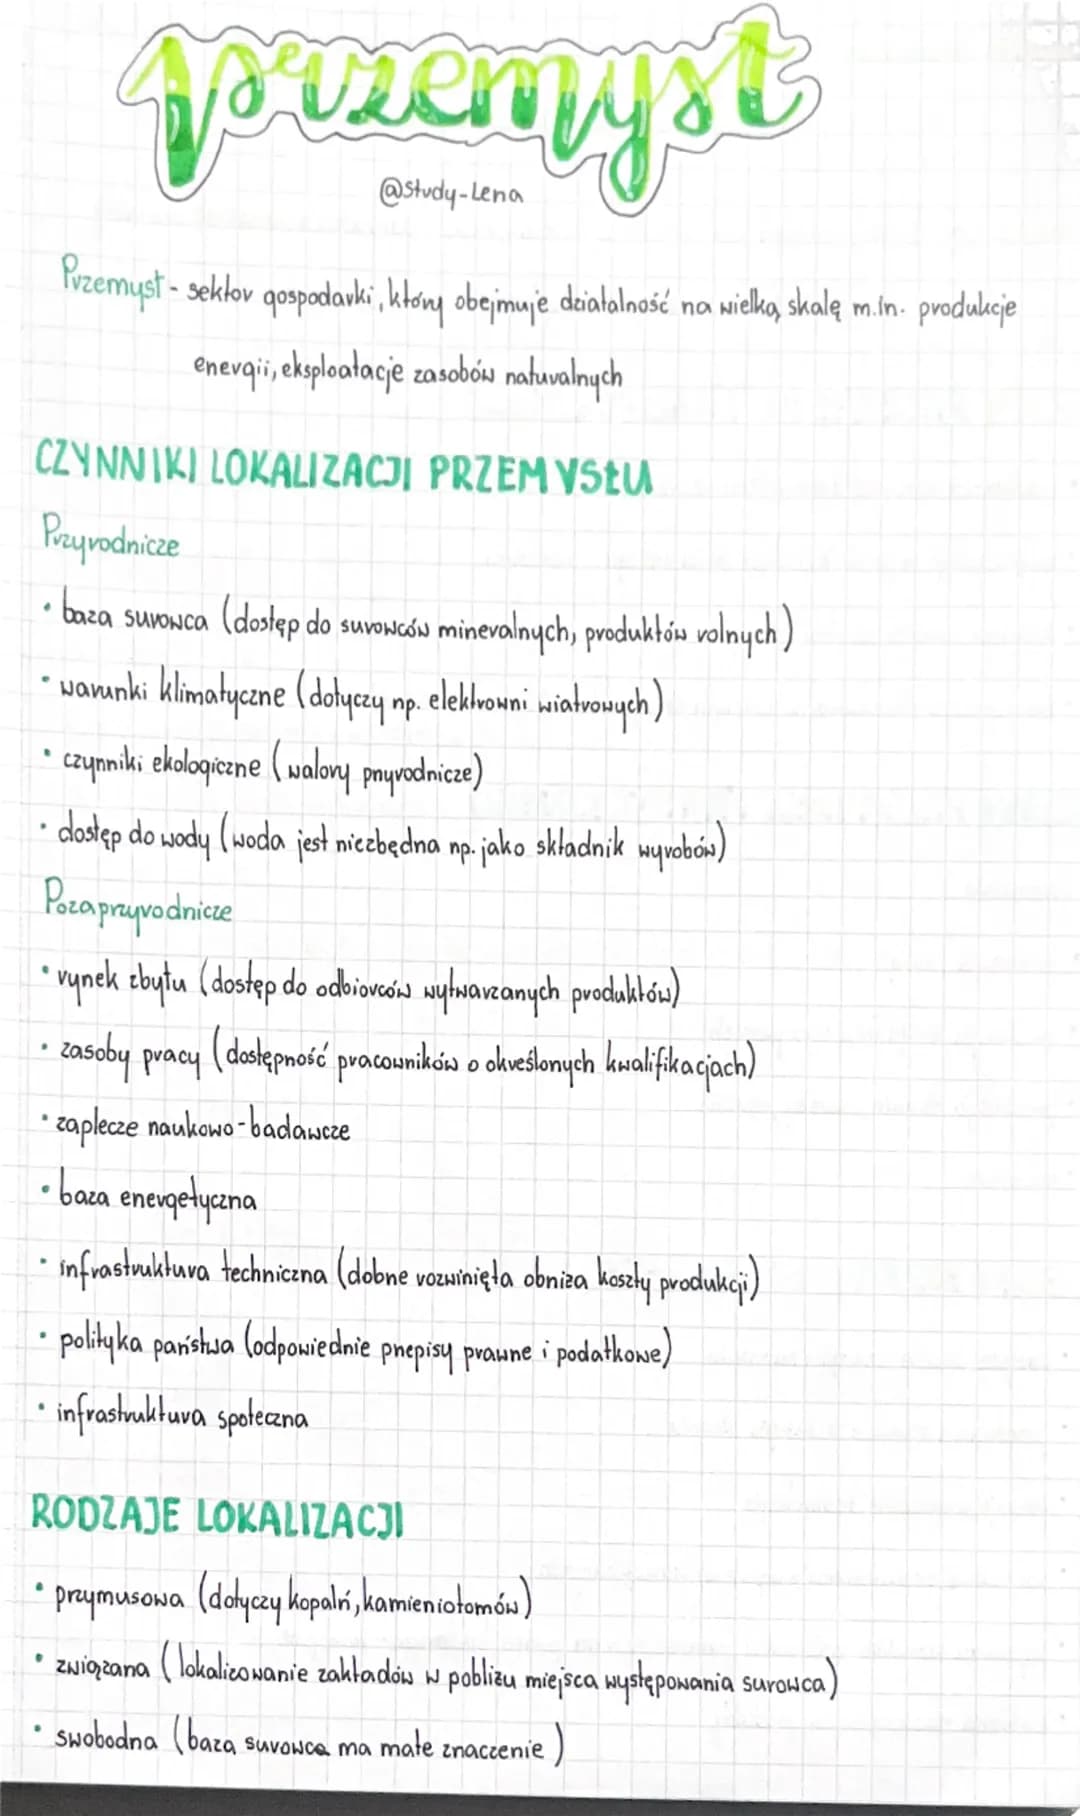 przemysł
@study-Lena
Przemysł - sektor gospodarki, który obejmuje działalność na wielką skalę m.in. produkcje
energii, eksploatacje zasobów naturalnych
CZYNNIKI LOKALIZACJI PRZEMYSŁU
Przyrodnicze
• baza surowca (dostęp do surowców mineralnych, produktów rolnych)
• warunki klimatyczne (dotyczy np. elektrowni wiatrowych)
• czynniki ekologiczne (walory przyrodnicze)
• dostęp do wody (woda jest niezbędna np. jako składnik wyrobów)
Pozaprzyrodnicze
• rynek zbytu (dostęp do odbiorców wytwarzanych produktów)
• zasoby pracy (dostępność pracowników o określonych kwalifikacjach)
• zaplecze naukowo-badawcze
• baza energetyczna
• infrastruktura techniczna (dobrze rozwinięta obniża koszty produkcji)
• polityka państwa (odpowiednie przepisy prawne i podatkowe)
• infrastruktura społeczna
RODZAJE LOKALIZACJI
• przymusowa (dotyczy kopalń, kamieniołomów)
• związana (lokalizowanie zakładów w pobliżu miejsca występowania surowca)
• swobodna (baza surowca ma małe znaczenie)